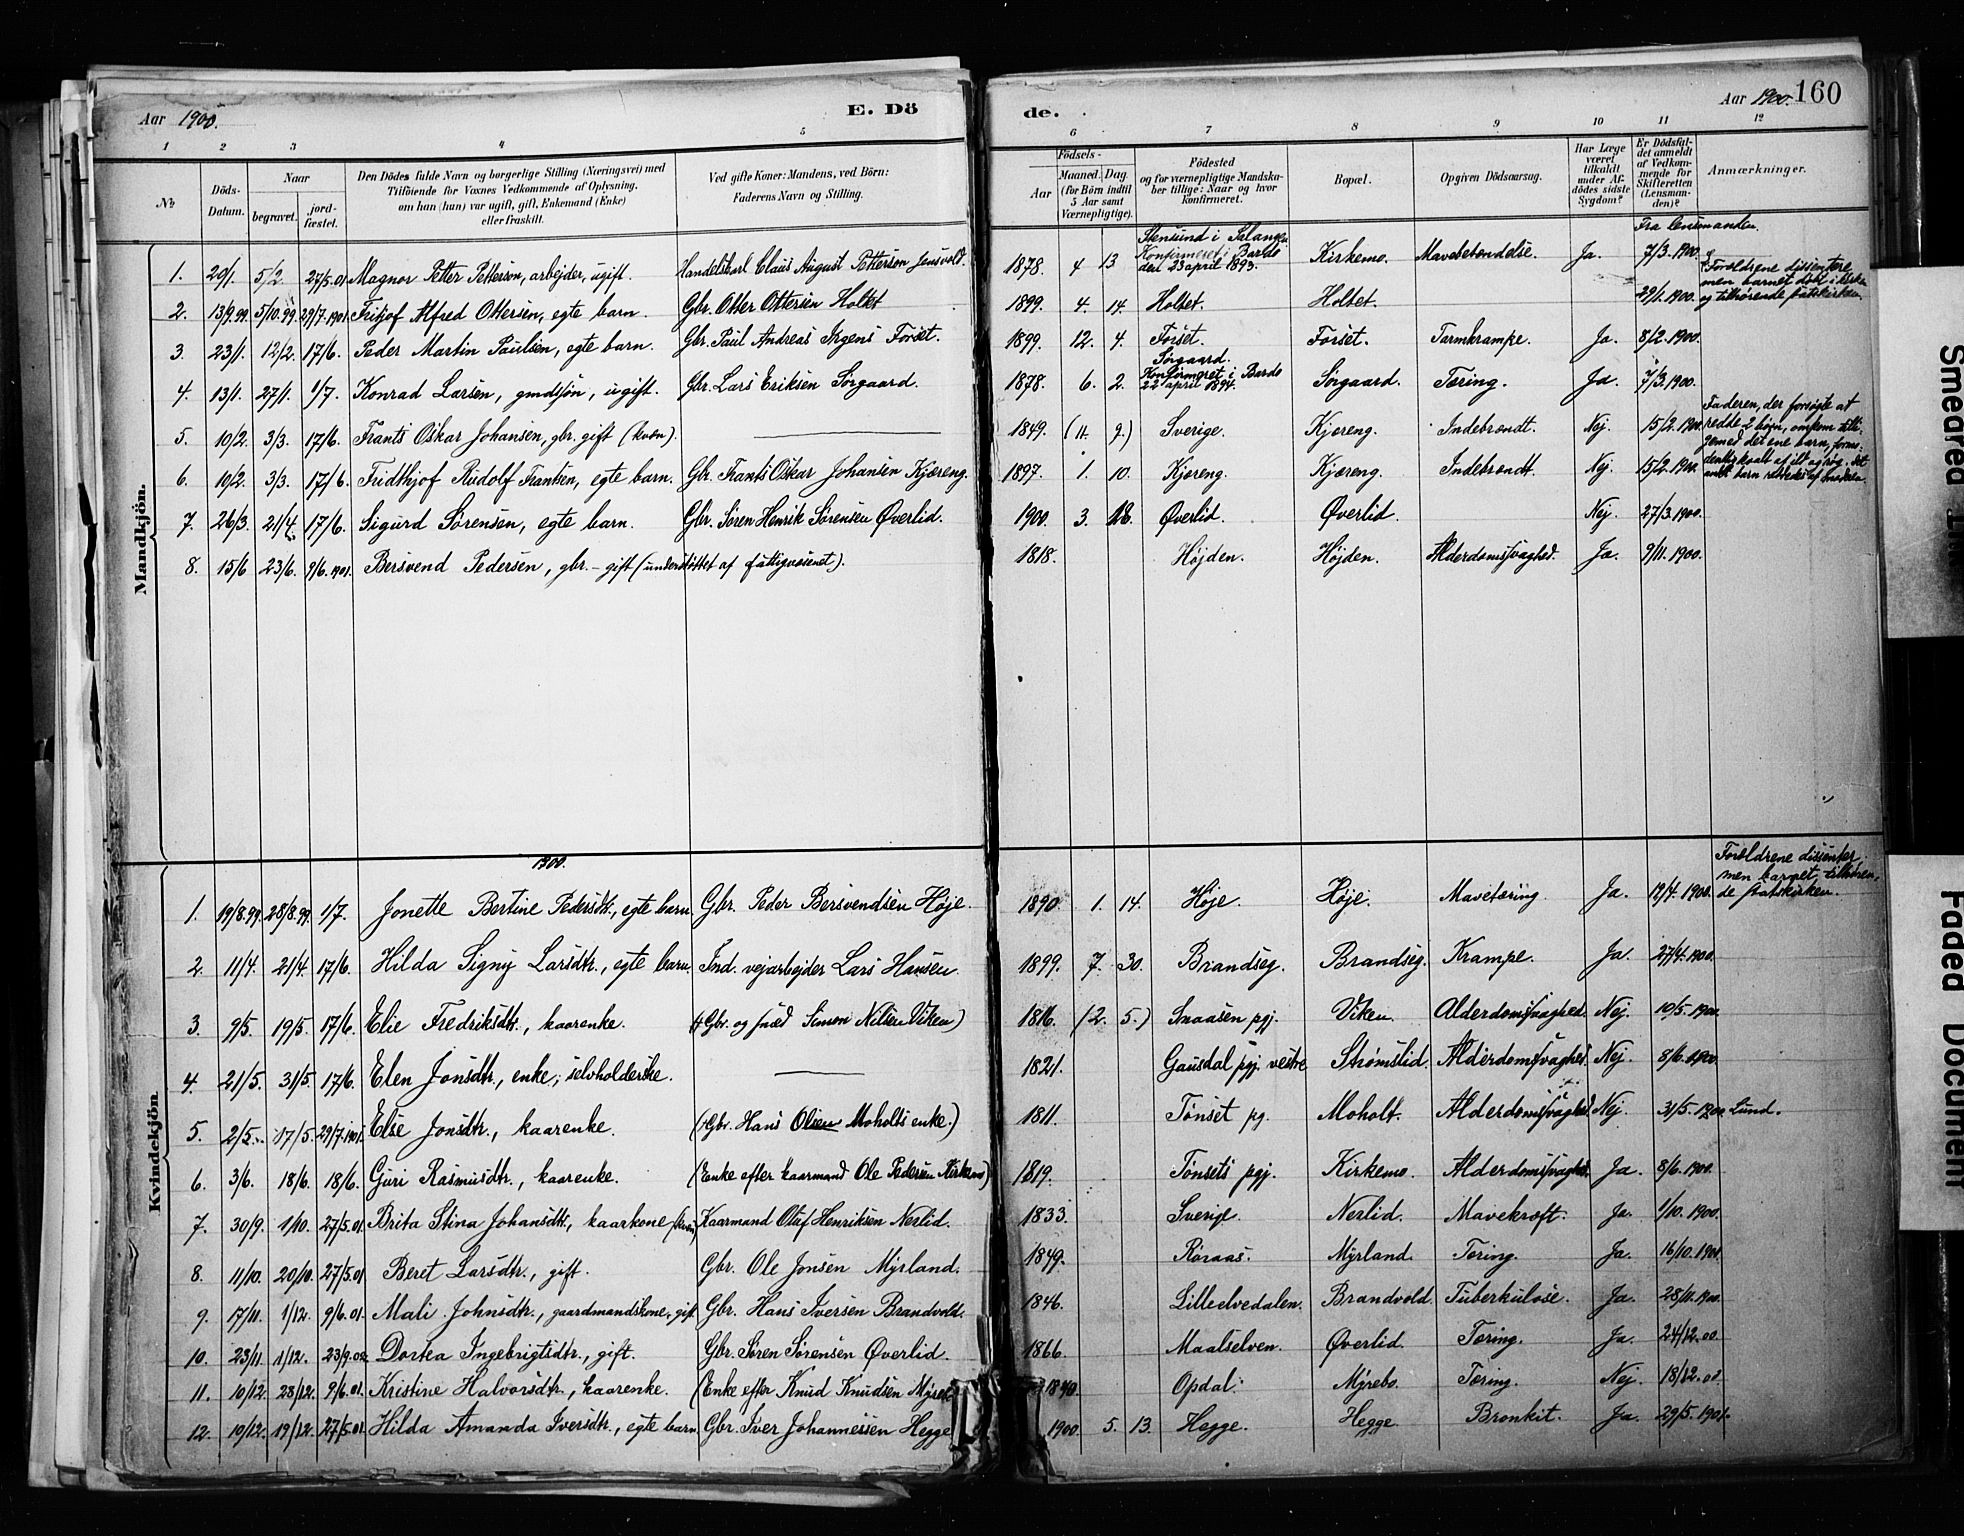 Aar 1900. E. Dö
1 2 3 4 5
№ Döds-Datum. Naar begravet. jord-fæstet. Den Dödes fulde Navn og borgerlige Stilling (Næringsvei) med Tilföiende för Voxnes Vedkommende af Oplysning, om han (hun) var ugift, gift, Enkemand (Enke) eller fraskilt. Ved gifte Koner: Mandens, ved Börn: Faderens Navn og Stilling.
Mandkjön.
1. 29/1. 5/2. 27/5.01 Magnor Petter Pettersen, arbejder, ugift. Handelskarl Claus August Pettersen
2. 13/9.99. 5/10.99. 29/7.1901. Fritjof Alfred Ottersen, egte barn. Gbr. Otter Ottersen Holtet
3. 23/1. 12/2. 17/6. Peder Martin Paulsen, egte barn. Gbr. Paul Andreas Irgens Forset.
4. 13/1. 27/1. 1/7. Konrad Larsen, gmdsjøn, ugift. Gbr. Lars Eriksen Sørgaard.
5. 10/2. 3/3. 17/6. Frants Oskar Johansen, gbr. gift (kvæn).
6. 10/2. 3/3. 17/6. Fridthjof Rudolf Frantsen, egte barn. Gbr. Frants Oskar Johansen Kjæreng.
7. 26/3. 21/4. 17/6. Sigurd Sørensen, egte barn. Gbr. Søren Henrik Sørensen Øverlid.
8. 15/6 23/6. 9/6.1901. Bersvend Pedersen, gbr. - gift (understøttet af fattigvæsenet).
1900.
Kvindekjön.
1. 19/8.99. 28/8.99. 1/7. Jonette Bertine Pedersdtr., egte barn Gbr. Peder Bersvendsen Høje.
2. 11/4. 21/4. 17/6. Hilda Signy Larsdtr., egte barn. Ind. vejarbejder Lars Hansen
3. 9/5. 19/5. 17/6. Elie Fredriksdtr., kaarenke. (Gbr. og smed Simon Nilsen Viken)
4. 21/5. 31/5. 17/6. Elen Jonsdtr., enke; selvholderske.
5. 2/5. 17/5. 29/7.1901. Else Jonsdtr., kaarenke. (Gbr. Hans Olsen Moholts enke.)
6. 3/6. 18/6. 18/6. Guri Rasmusdtr., kaarenke. (Enke efter kaarmand Ole Pedersen Kirkemo)
7. 30/9. 1/10. 27/5.01. Brita Stina Johansdtr., kaarkone (kvæn) Kaarmand Olaf Henriksen Nerlid.
8. 11/10. 20/10. 27/5.01 Beret Larsdtr., gift. Gbr. Ole Jonsen Myrland.
9. 17/11. 1/12. 9/6.01. Mali Johnsdtr., gaardmandskone, gift Gbr. Hans Iversen Brandvold.
10. 23/11. 1/12. 23/9.02. Dortea Ingebrigtsdtr., gift. Gbr. Søren Sørensen Øverlid.
11. 10/12. 28/12. 9/6.01. Kristine Halvorsdtr., kaarenke. (Enke efter Knud Knudsen
12. 10/12. 19/12. 27/5.01. Hilda Amanda Iversdtr., egte barn Gbr. Iver Johannessen Hegge
de. Aar 1900. 160
6 7 8 9 10 11 12
Födsels- Aar Maaned. Dag. (for Börn indtil 5 Aar samt Værnepligtige). Födested og for værnepligtige Mandskaber tillige: Naar og hvor konfirmeret. Bopæl. Opgiven Dödsaarsag. Har Læge været tilkaldt under Afdödes sidste Sygdom? Er Dödsfaldet anmeldt af Vedkommende for Skifteretten (Lensmanden)? Anmærkninger.
Fra lensmanden.
1878. 4 13 Stensund i Salangen Konfirmeret i Bardo den 23 april 1893. Kirkemo. Mavebetændelse. Ja. 7/3.1900.
1899. 4. 14. Holtet. Holtet. 29/1.1900. Forældrene dissentere men barnet døbt i kirken og tilhørende statskirken.
1899. 12. 4. Forset. Forset. Tarmkrampe. Ja. 8/2.1900.
1878. 6. 2. Sørgaard. Konfirmeret i Bardo 22 april 1894. Sørgaard. Tæring. Ja. 7/3.1900.
1849. (11. 9.) Sverige. Kjæreng. Indebrændt. Nej. 15/2.1900. Faderen, der forsøgte at redde 2 børn, omkom tilligemed det ene barn,
1897. 1. 10. Kjæreng. Kjæreng. Indebrændt. Nej. 15/2.1900.
1900. 3. 18. Øverlid. Øverlid. Nej. 27/3.1900.
1818. Højden. Højden. Alderdomssvaghed. Ja. 9/11.1900.
1890. 1. 14. Høje. Høje. Mavetæring. Ja. 12/4.1900. Forældrene dissenter, men barnet tilhørende statskirken.
1899. 7. 30. Brandseg. Brandseg. Krampe. Ja. 27/4.1900.
1816. (2. 5.) Snaasen pgj. Viken Alderdomssvaghed. Nej. 10/5.1900.
1821. Gausdal pgj. vestre Strømslid. Alderdomssvaghed. Nej. 8/6.1900.
1811. Tønset pg. Moholt. Alderdomssvaghed. Nej. 31/5.1900 Lund.
1819. Tønsets pgj. Kirkemo. Alderdomssvaghed. Ja. 8/6.1900.
1833. Sverige. Nerlid. Mavekræft. Ja. 1/10.1900.
1849. Røraas. Myrland. Tæring. Ja. 16/10.1900
1846. Lilleelvedalen. Brandvold. Tuberkulose. Ja. 28/11.1900.
1866. Maalselven. Øverlid. Tæring. Ja. 24/12.00.
1840. Opdal. Myrebo. Tæring. Nej. 18/12.00.
1900. 5. 13. Hegge. Hegge Bronkit. Ja. 29/5.1901.
Smeared
Faded Document